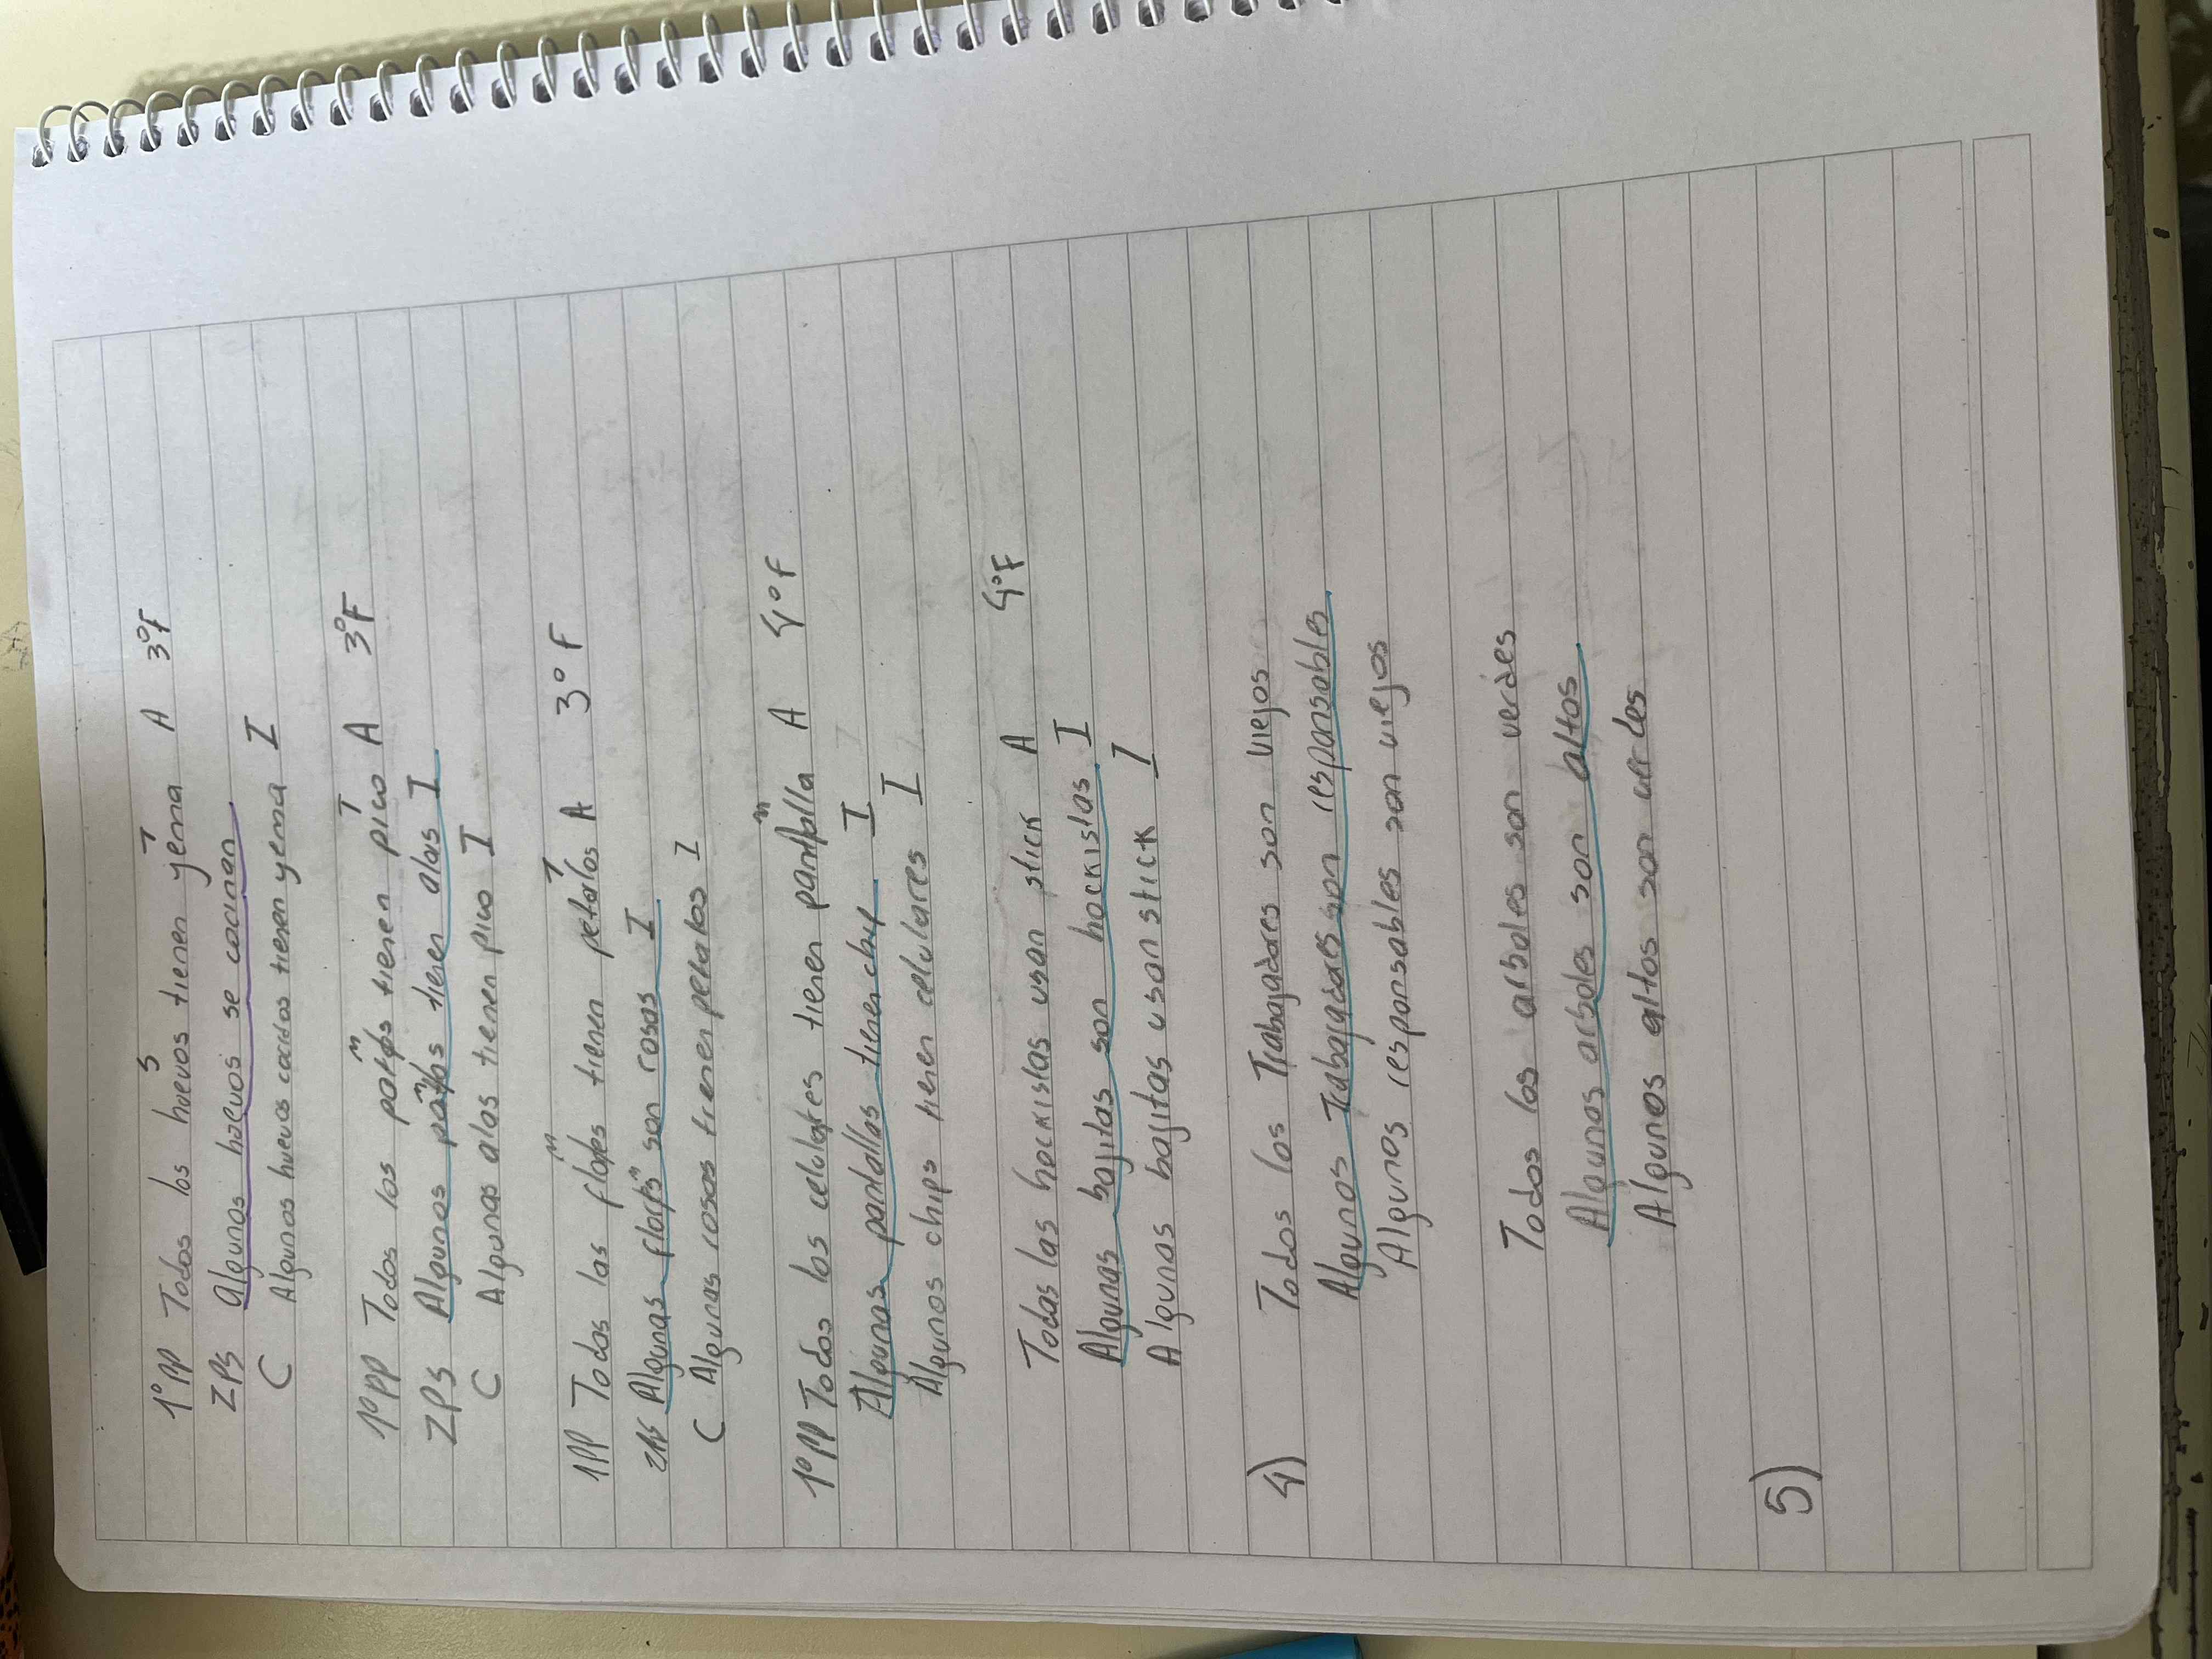 S T
1º PP Todos los huevos tienen yema A 3ºF
2PS algunos huevos se cocinan
C Algunos huevos cocidos tienen yema I
M T
1º PP Todos los patos tienen pico A 3ºF
2PS Algunos patos tienen alas I
C Algunas alas tienen pico I
M T
1PP Todas las flores tienen petalos A 3º F
2PS Algunas flores son rosas I
C Algunas rosas tienen petalos I
M
1º PP Todos los celulares tienen pantalla A 4º F
Algunas pantallas tienen chip I
Algunos chips tienen celulares I
4ºF
Todas las hockistas usan stick A
Algunas bajitas son hockistas I
Algunas bajitas usan stick I
4) Todos los Trabajadores son viejos
Algunos Trabajadores son responsables
Algunos responsables son viejos
Todos los arboles son verdes
Algunos arboles son altos
Algunos altos son verdes
5)